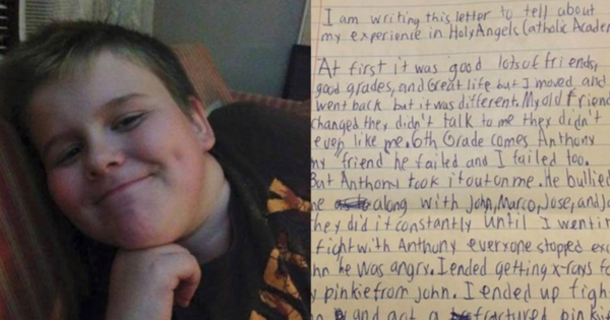 I am writing this letter to tell about
my experience in Holy Angels Catholic Academ
At first it was good lots of friends,
good grades, and Great life but I moved and
went back but it was different. My old friend
changed they didn't talk to me they didn't
even like me. 6th Grade comes Anthony
my friend he failed and I failed too.
But Anthony took it out on me. He bullied
me along with John, Marco, Jose, and Jo
hey did it constantly until I went in
fight with Anthony everyone stopped exc
hn he was angry. I ended getting x-rays fo
pinkie from John. I ended up figh
and got a fractured pinki